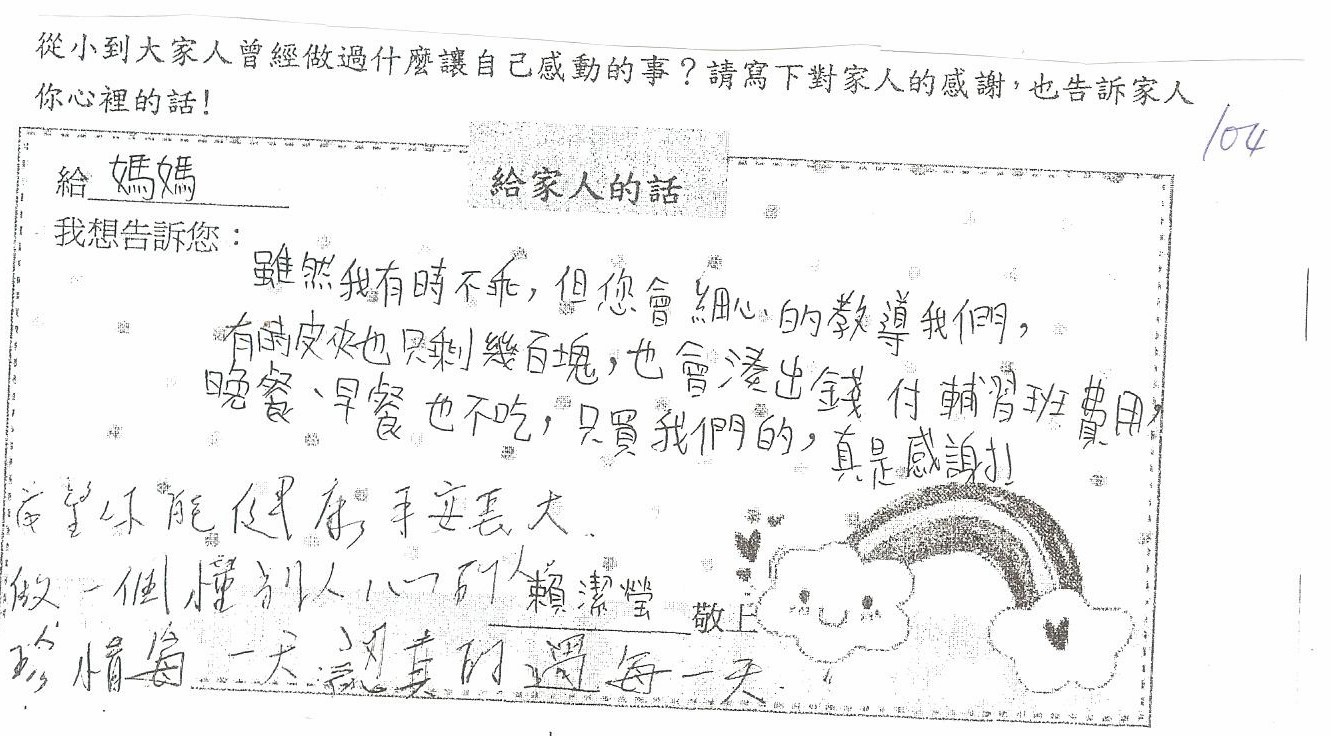 從小到大家人曾經做過什麼讓自己感動的事？請寫下對家人的感謝，也告訴家人
你心裡的話！
104
給家人的話
給媽媽
我想告訴您：
雖然我有時不乖，但您會細心的教導我們，
有時皮夾也只剩幾百塊，也會湊出錢付輔習班費用，
晚餐、早餐也不吃，只買我們的，真是感謝！！
希望你能健康平安長大.
做一個懂別人心的人
賴潔瑩敬上
珍惜每一天認真的過每一天